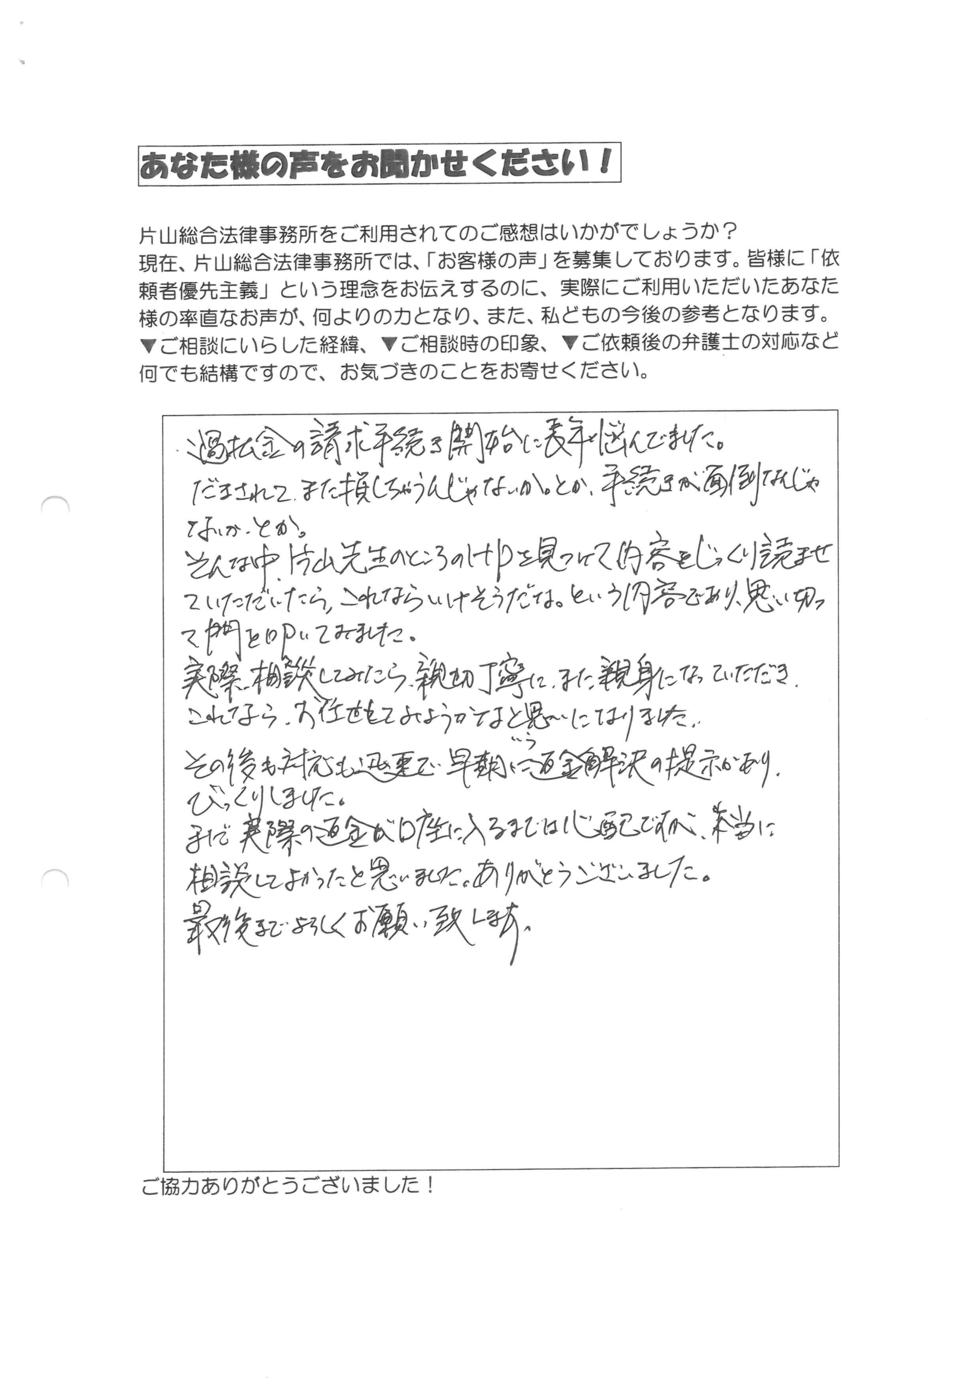 あなた様の声をお聞かせください！
片山総合法律事務所をご利用されてのご感想はいかがでしょうか？
現在、片山総合法律事務所では、「お客様の声」を募集しております。皆様に「依
頼者優先主義」という理念をお伝えするのに、実際にご利用いただいたあなた
様の率直なお声が、何よりの力となり、また、私どもの今後の参考となります。
▼ご相談にいらした経緯、▼ご相談時の印象、▼ご依頼後の弁護士の対応など
何でも結構ですので、お気づきのことをお寄せください。
過払金の請求手続き開始に長年悩んでました。
だまされて、また損しちゃうんじゃないか。とか、手続きが面倒なんじゃ
ないか、とか。
そんな中、片山先生のところのHPを見つけて内容をじっくり読ませ
ていただいたら、これならいけそうだな。という内容であり、思い切っ
て門を叩いてみました。
実際、相談してみたら、親切丁寧に、また親身になっていただき、
これなら、お任せしてみようかなと思いになりました。
その後も対応も迅速で早期にいう返金解決の提示があり、
びっくりしました。
まだ実際の返金が口座に入るまでは心配ですが、本当に
相談してよかったと思いました。ありがとうございました。
最後までよろしくお願い致します。
ご協力ありがとうございました！